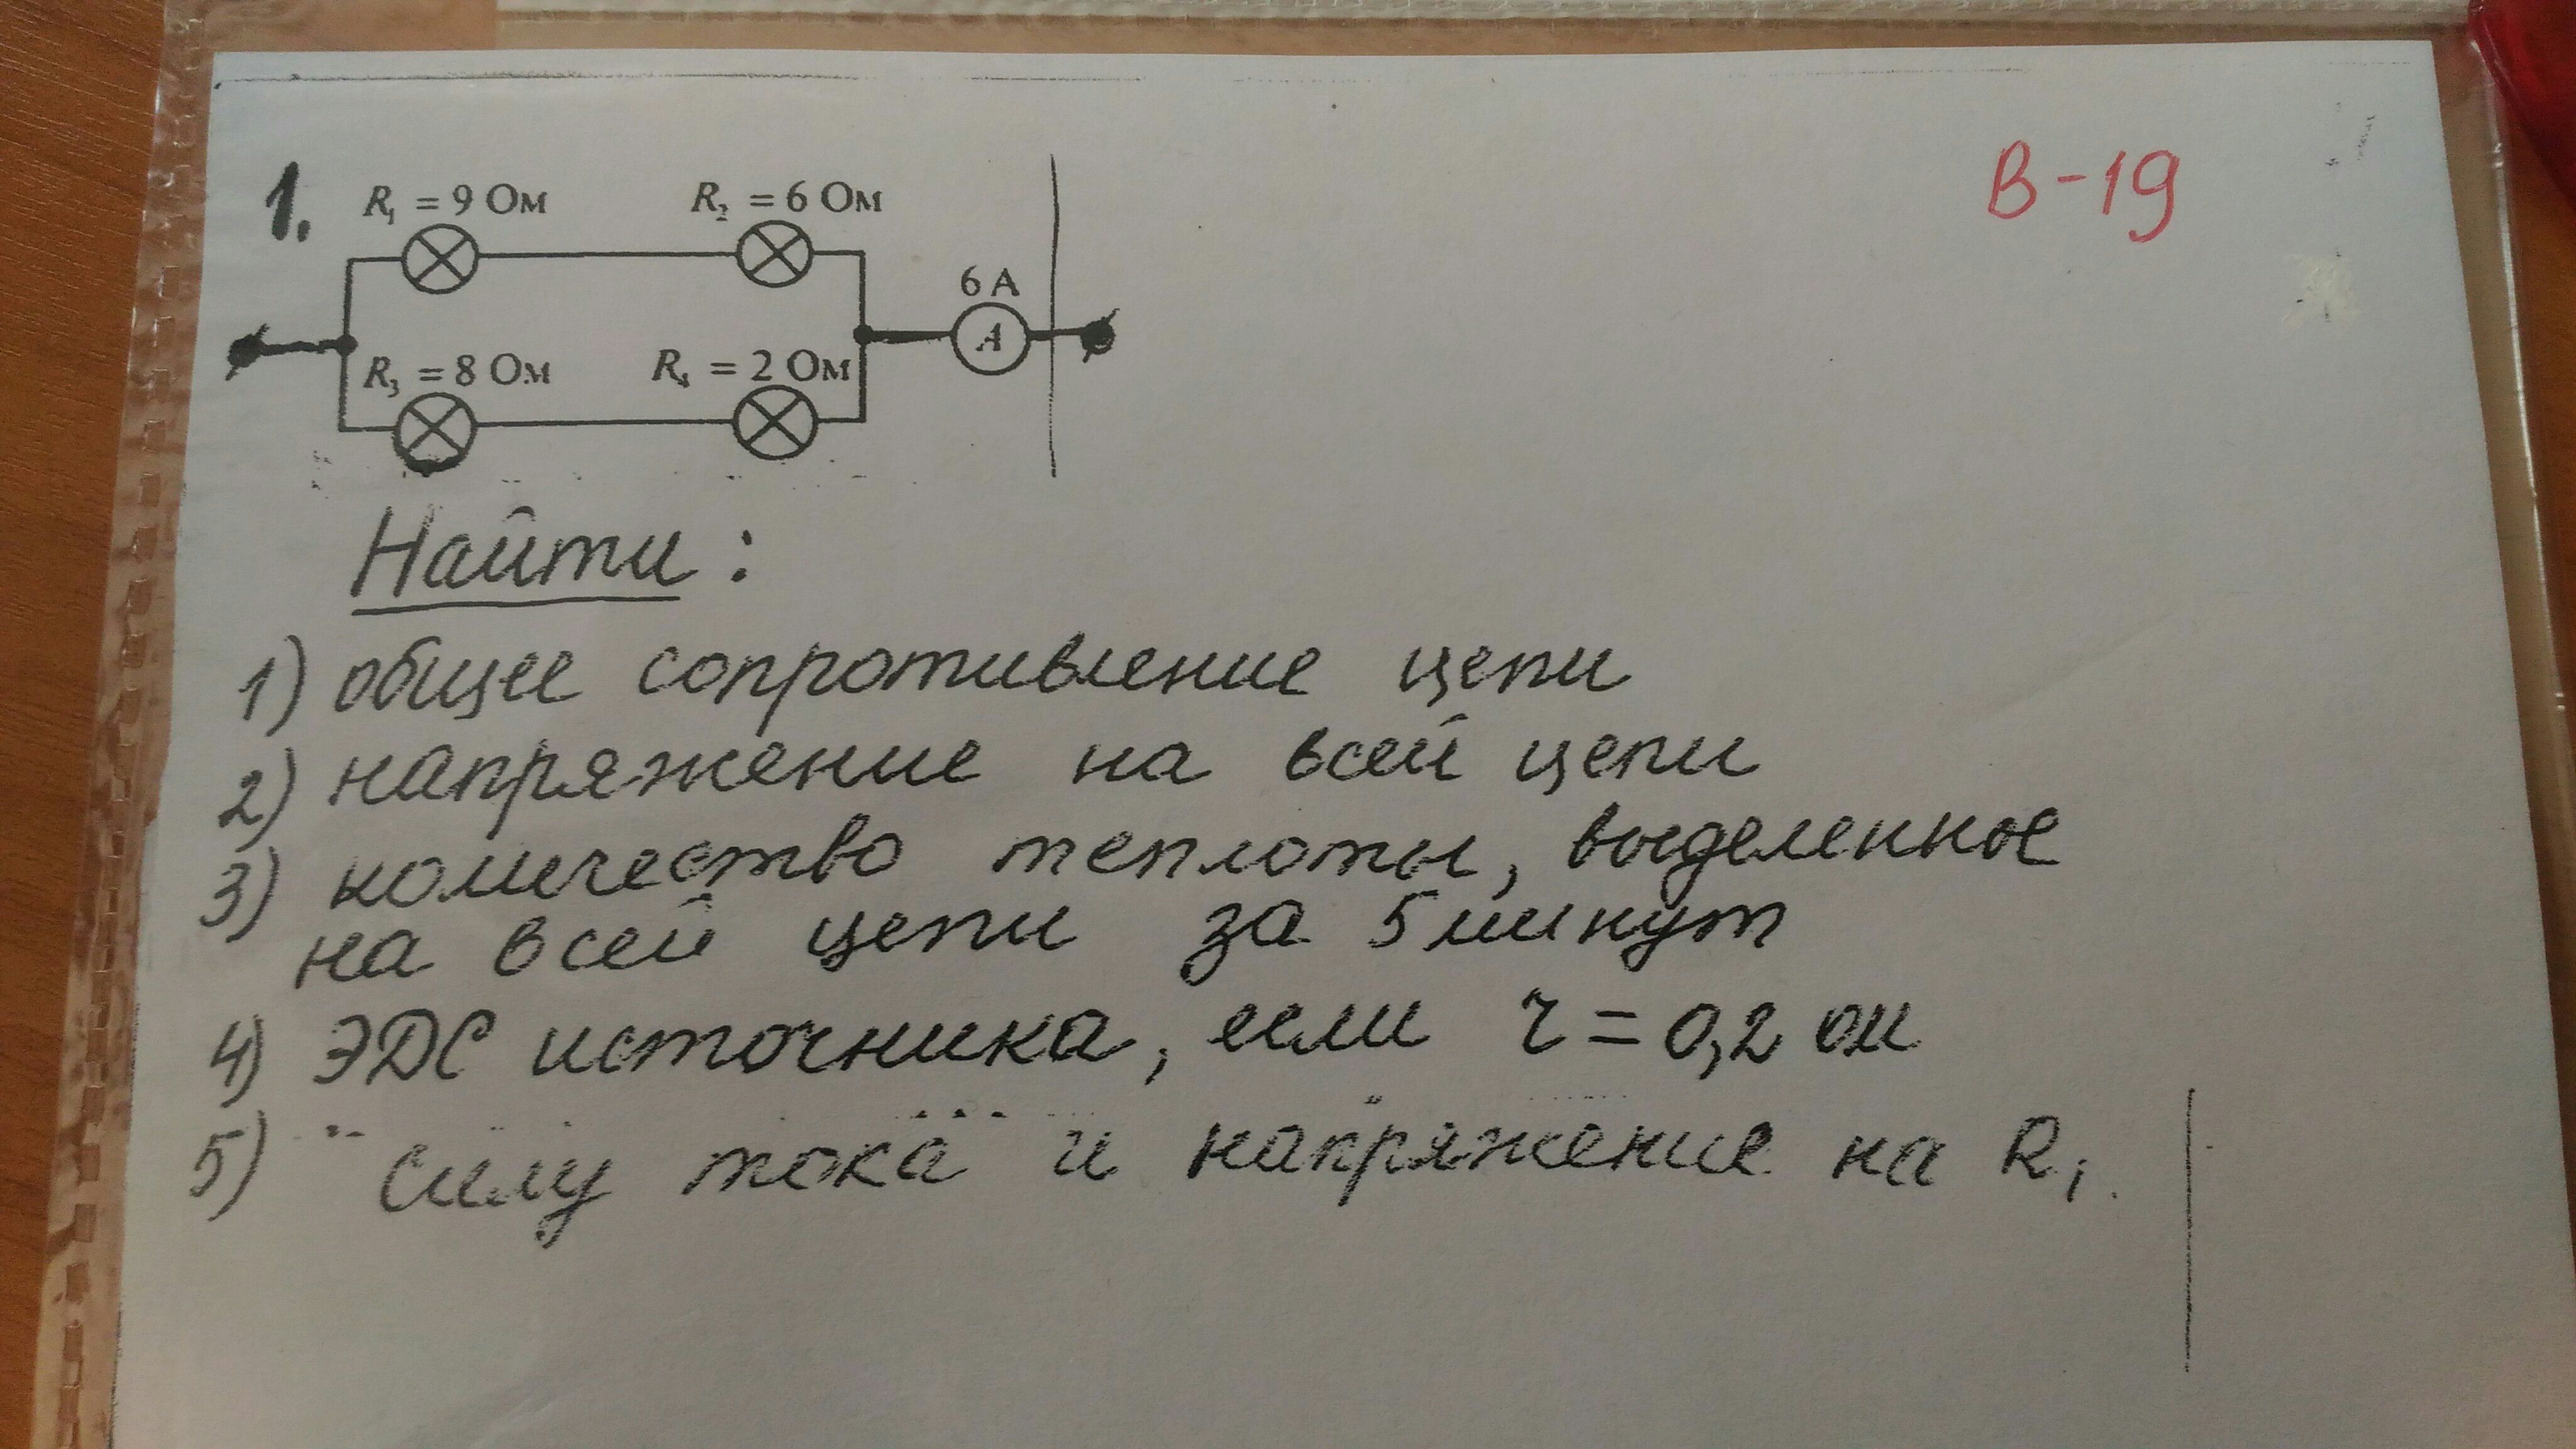 В-19
1.
R₁ = 9 Ом R₂ = 6 Ом
6 А
А
R₃ = 8 Ом R₄ = 2 Ом
Найти:
1) общее сопротивление цепи
2) напряжение на всей цепи
3) количество теплоты, выделенное
на всей цепи за 5 минут
4) ЭДС источника, если r = 0,2 ом
5) силу тока и напряжение на R₁